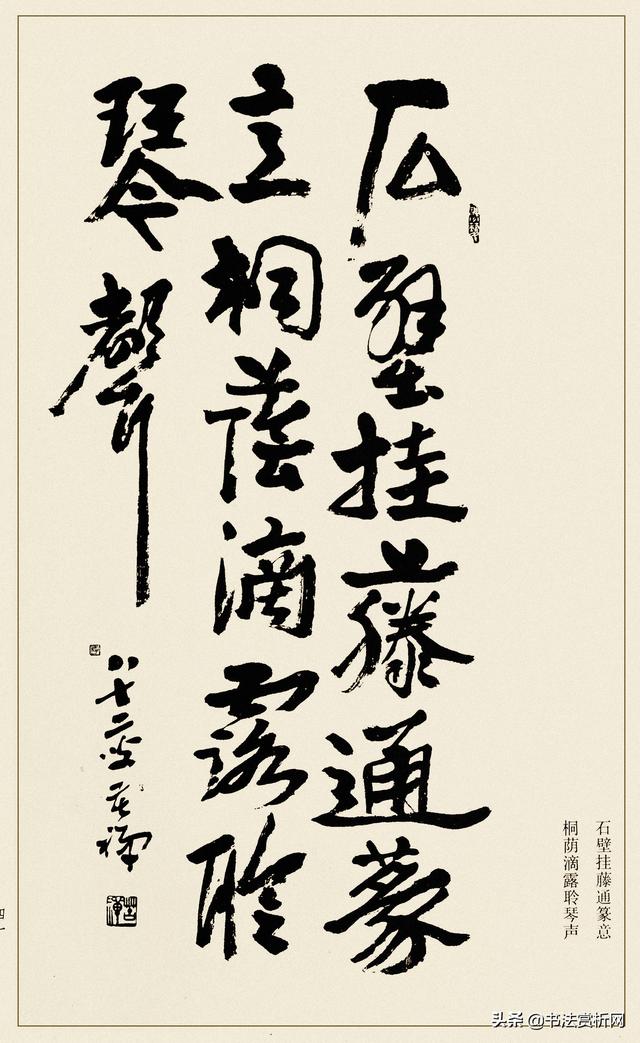 石壁挂藤通篆
意桐蔭滴露聆
琴聲
八十二叟苦禪
石壁挂藤通篆意
桐荫滴露聆琴声
四一
头条 @书法赏析网